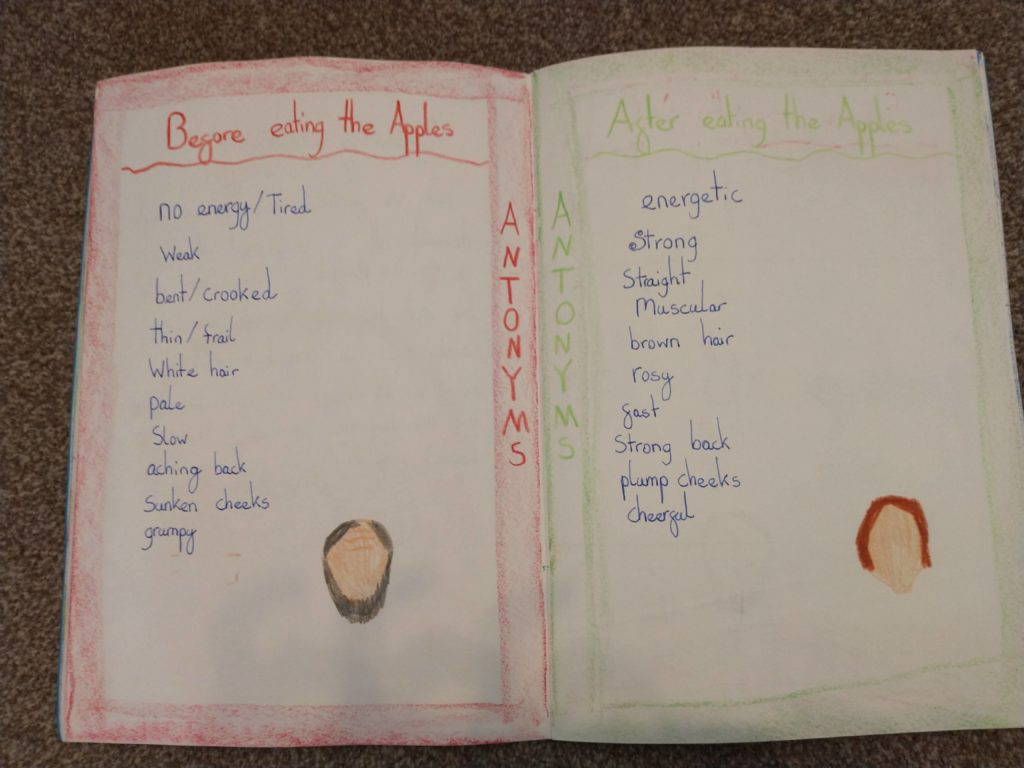 Before eating the Apples
no energy/Tired
Weak
bent/crooked
thin/frail
White hair
pale
Slow
aching back
Sunken cheeks
grumpy
ANTONYMS
ANTONYMS
After eating the Apples
energetic
Strong
Straight
Muscular
brown hair
rosy
fast
Strong back
plump cheeks
cheerful